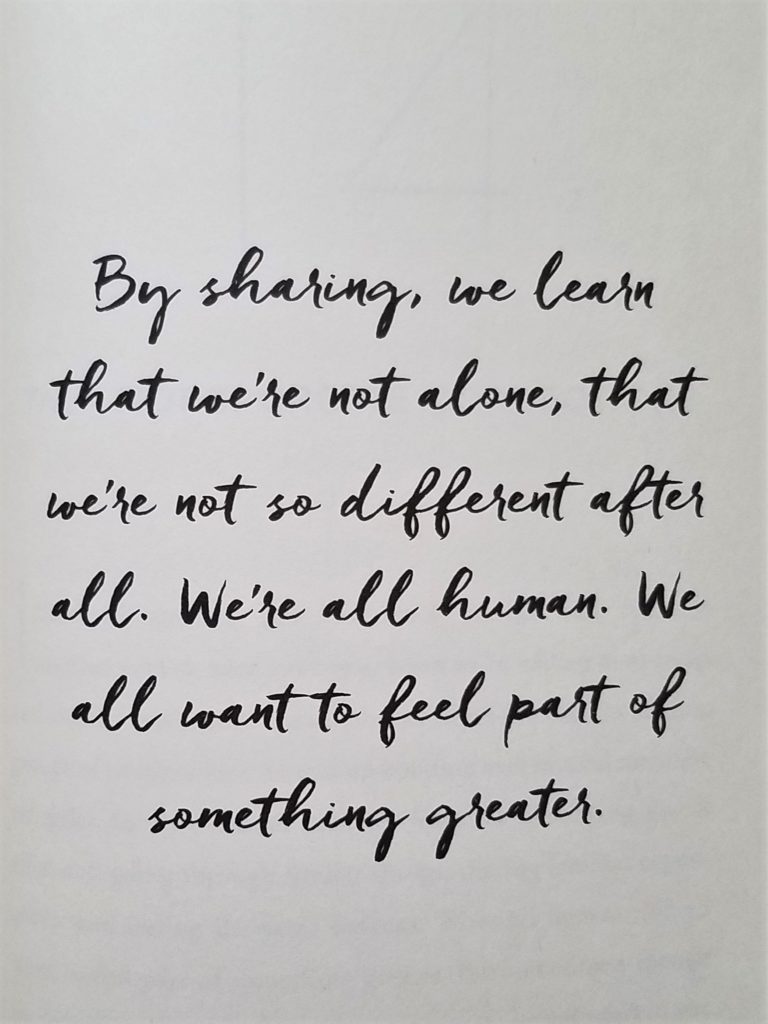 By sharing, we learn
that we're not alone, that
we're not so different after
all. We're all human. We
all want to feel part of
something greater.